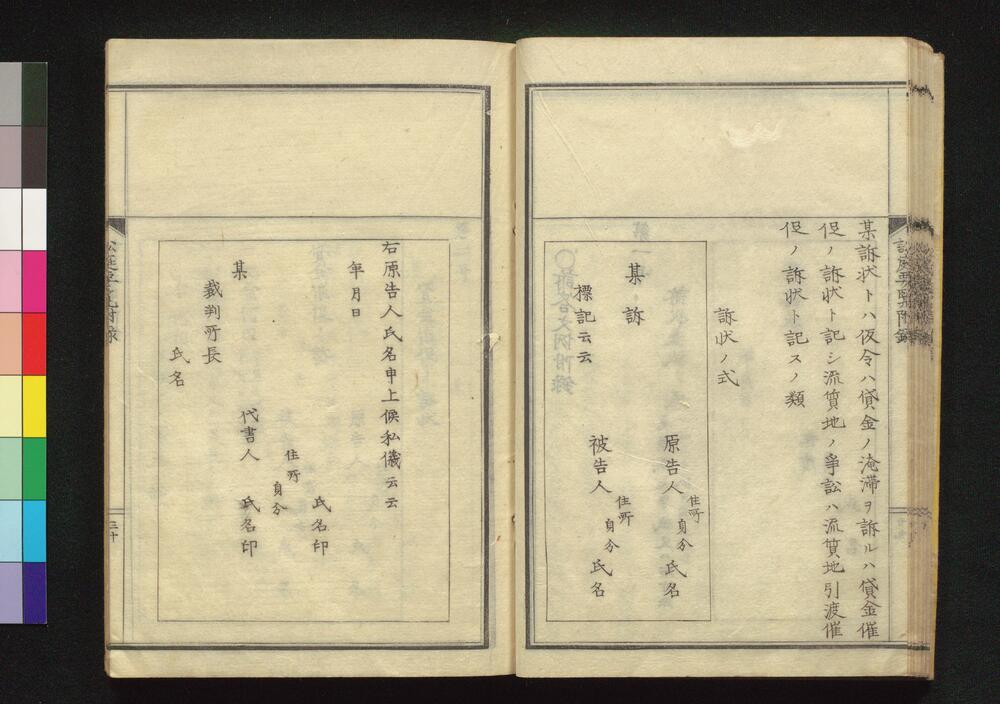 某訴状トハ仮令ハ貸金ノ淹滞ヲ訴ルハ貸金催
促ノ訴状ト記シ流質地ノ爭訟ハ流質地引渡催
促ノ訴状ト記スノ類
訴状ノ式
原告人
住所
自分
氏名
某訴
被告人
住所
自分
氏名
標記云云
右原告人氏名申上候私儀云云
年月日
氏名印
住所
自分
代書人
氏名印
某
裁判所長
氏名
三十